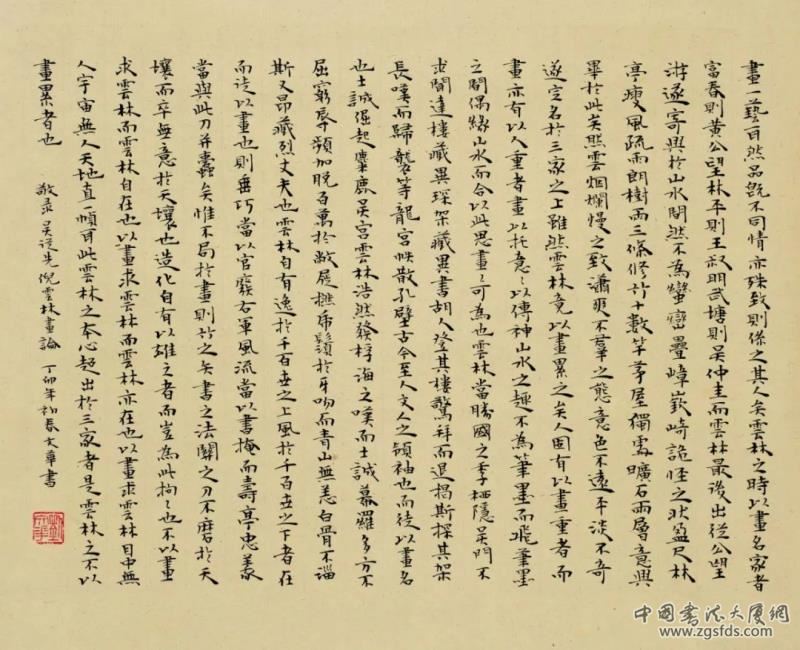 畫一藝耳然品既不同情亦殊致則係之其人矣雲林之時以畫名家者
富春則黃公望林平則王叔明武塘則吳仲圭而雲林最後出從公望
游遂寄興於山水間然不為蠻巒疊嶂嶔崎詭怪之狀盈尺林
亭瘦風疏雨朗樹雨三條修竹十數竿茅屋獨處曠石兩層意興
畢於此矣然雲烟爛慢之致瀟爽不羣之態意色不遠平淡不奇
遂定名於三家之上雖然雲林竟以畫累之矣人固有以畫重者而
畫亦有以人重者畫以托意意以傳神山水之趣不為筆墨而飛筆墨
之間偶緣山水而合以此思畫畫可為也雲林當勝國之季栖隱吳門不
求聞達樓藏異琛架藏異書胡人登其樓驚拜而退揭斯探其架
長嘆而歸襲等龍宮帙散孔壁古今至人文人之領袖也而徒以畫名
也士誠倔起麋鹿吳宮雲林浩然發桴海之嘆而士誠幕羅多方不
屈窮辱瀕加脫百萬於敝屣撩虎鬚於牙吻而青山無恙白骨不淄
斯又昂藏烈丈夫也雲林自有逸於千百世之上風於千百世之下者在
而徒以畫也則垂巧當以官廢右軍風流當以書掩而壽亭忠義
當與此刀并蠹矣惟不局於畫則竹之矣書之法關之刀不磨於天
壤而卒無意於天壤也造化自有以雄之者而豈為此拘拘也不以畫
求雲林而雲林自在也以畫求雲林而雲林亦在也以畫求雲林目中無
人宇宙無人天地直一幀耳此雲林之本心超出於三家者是雲林之不以
畫累者也 敬录吴從先倪雲林畫論 丁卯年初春文華書
中国書法大厦網
www.zgsfds.com